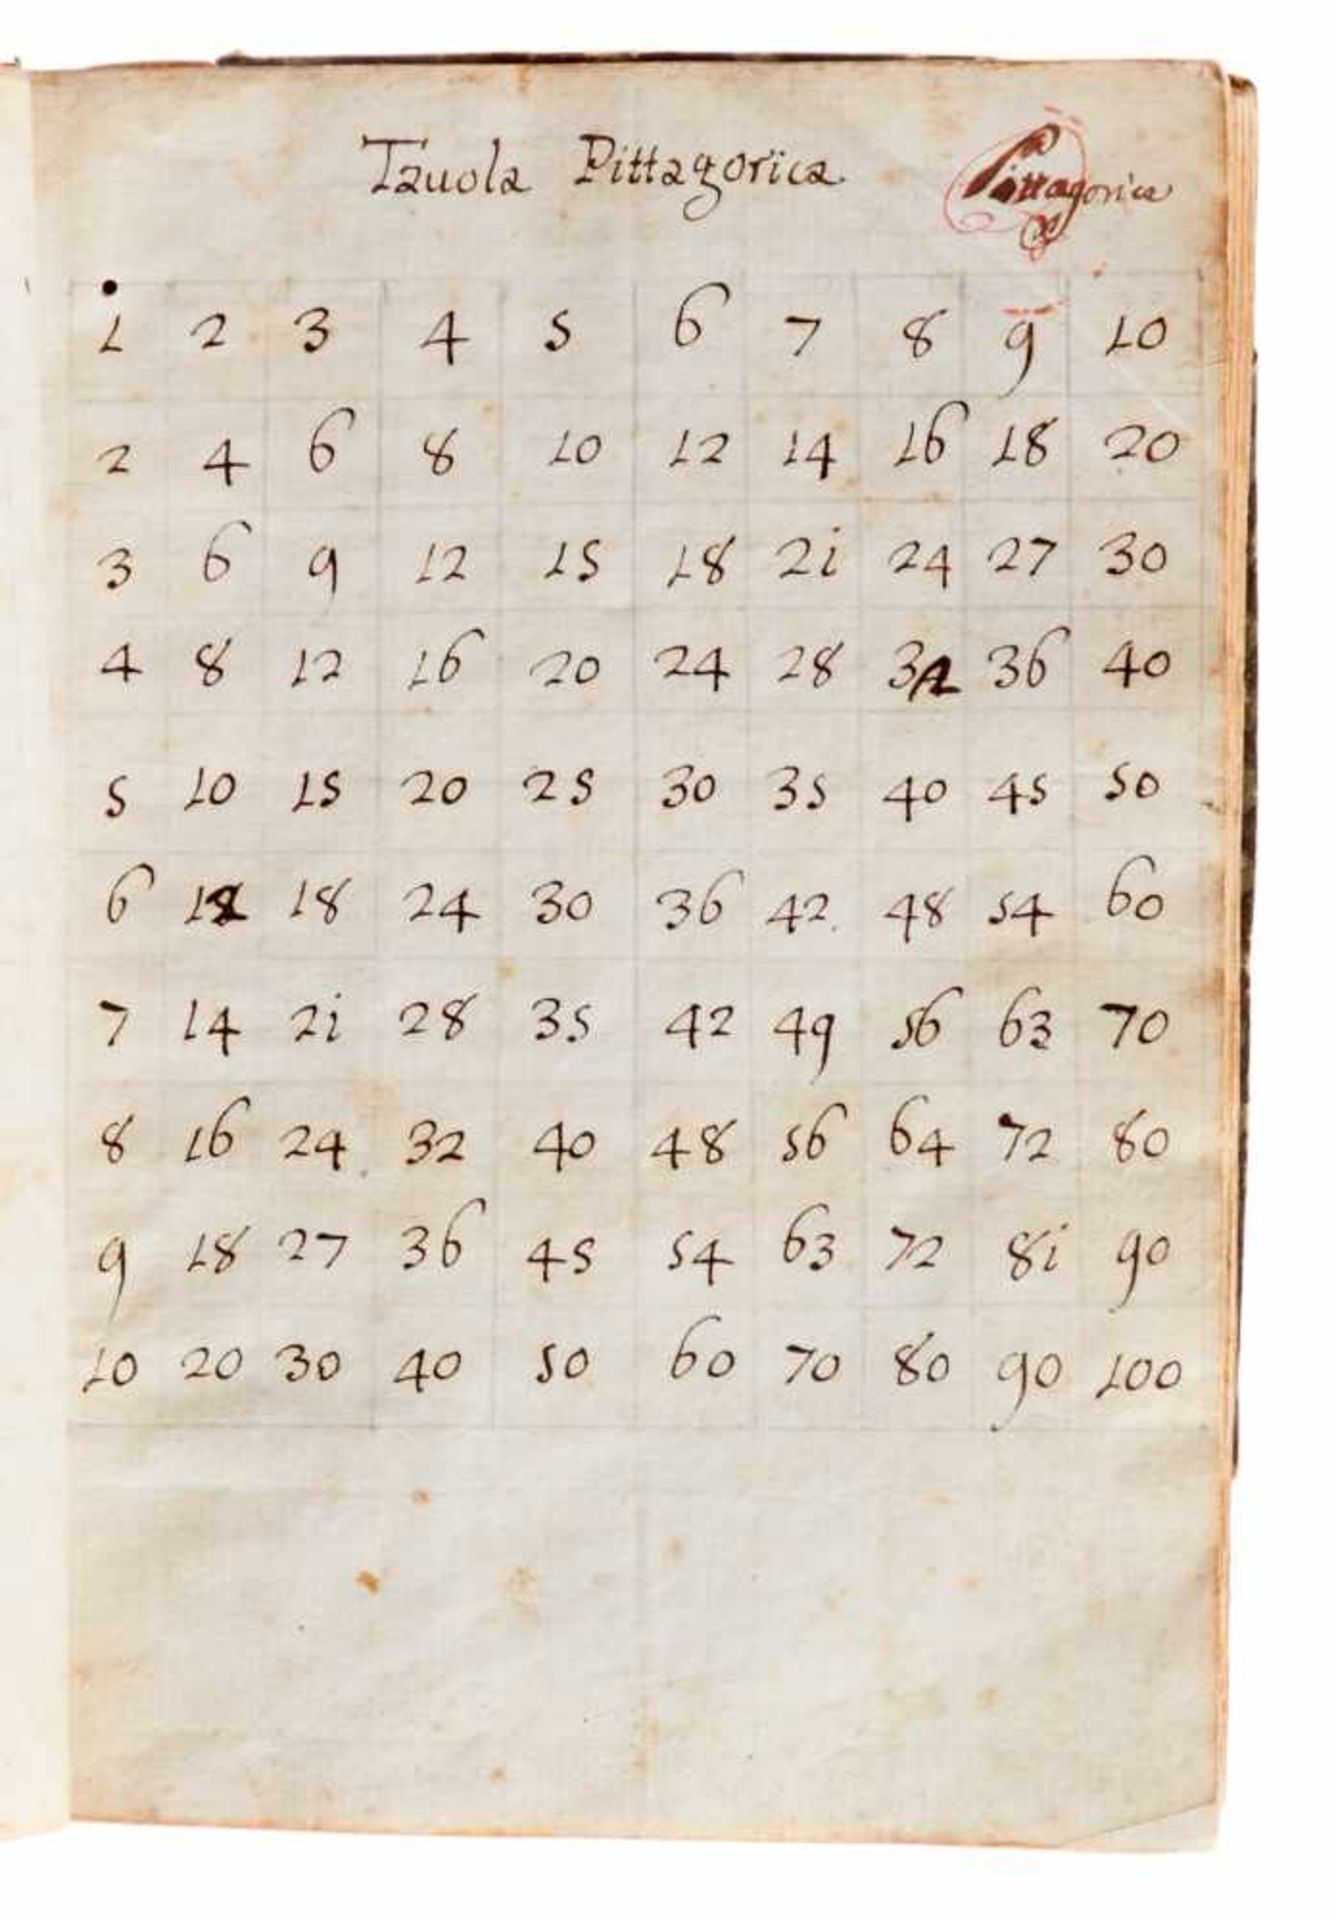 Tauola Pittagorica Pittagorica
1 2 3 4 5 6 7 8 9 10
2 4 6 8 10 12 14 16 18 20
3 6 9 12 15 18 2i 24 27 30
4 8 12 16 20 24 28 32 36 40
5 10 15 20 25 30 35 40 45 50
6 12 18 24 30 36 42 48 54 60
7 14 2i 28 35 42 49 56 63 70
8 16 24 32 40 48 56 64 72 80
9 18 27 36 45 54 63 72 8i 90
10 20 30 40 50 60 70 80 90 100